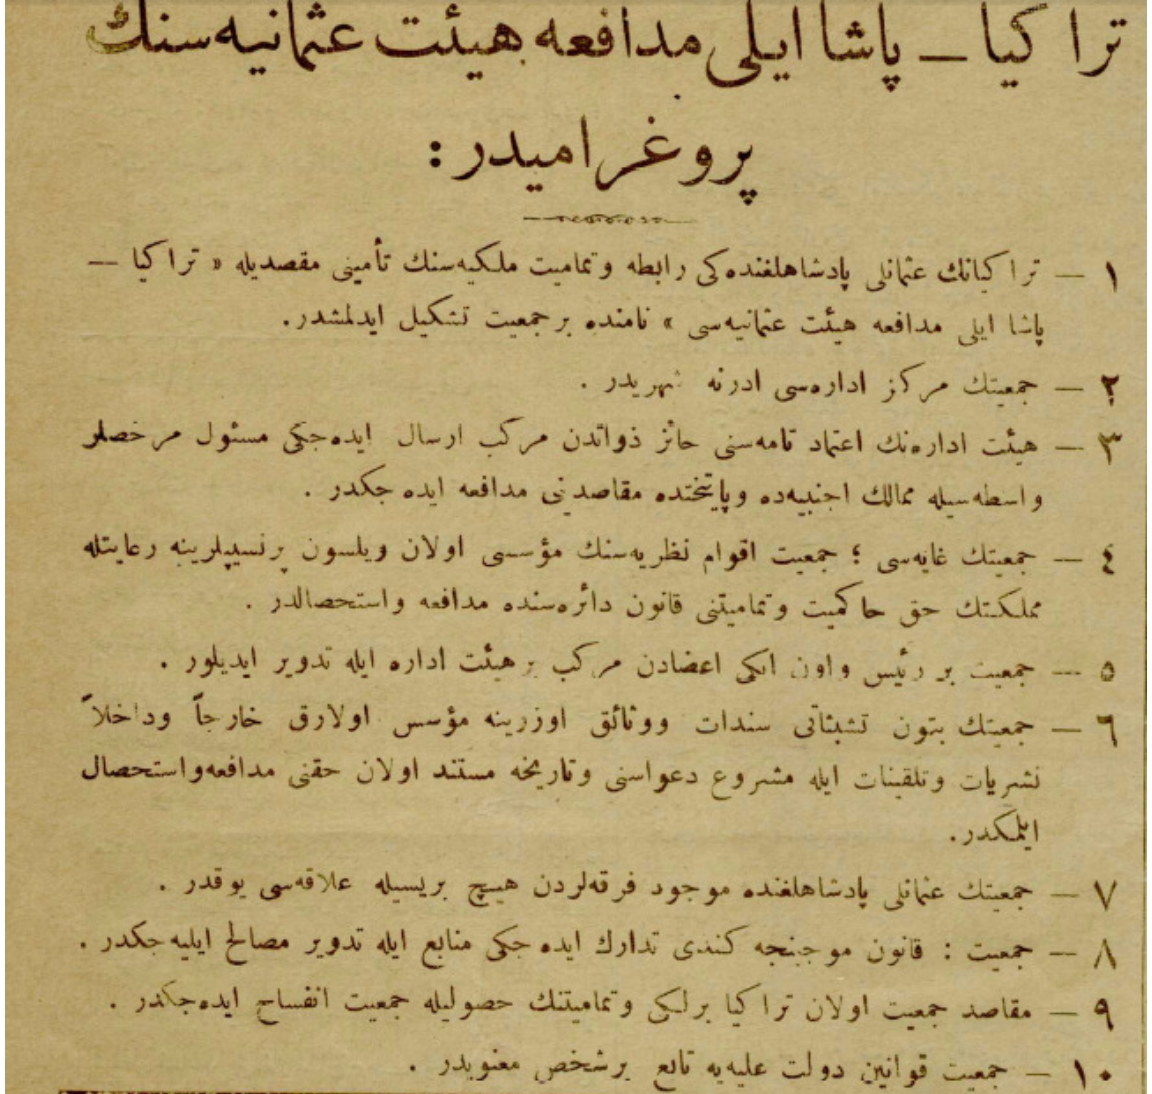 تراکیا — پاشا ایلی مدافعه هیئت عثمانیه‌سنك
پروغرامیدر :
۱ — تراکیانك عثمانلی پادشاهلغنده‌کی رابطه و تمامیت ملکیه‌سنك تأمینی مقصدیله « تراکیا —
پاشا ایلی مدافعه هیئت عثمانیه‌سی » نامنده بر جمعیت تشکیل ایدلمشدر.
۲ — جمعیتك مرکز اداره‌سی ادرنه شهریدر .
۳ — هیئت اداره‌نك اعتماد تامه‌سنی حائز ذواتدن مرکب ارسال ایده‌جکی مسئول مرخصلر
واسطه‌سیله ممالك اجنبیه‌ده وپایتختده مقاصدینی مدافعه ایده جکدر .
٤ — جمعیتك غایه‌سی ؛ جمعیت اقوام نظریه‌سنك مؤسسی اولان ویلسون پرنسیپلرینه رعایتله
مملکتك حق حاکمیت وتمامیتنی قانون دائره‌سنده مدافعه واستحصالدر .
٥ — جمعیت بر رئیس واون ایکی اعضادن مرکب بر هیئت اداره ایله تدویر ایدیلور .
٦ — جمعیتك بتون تشبثاتی سندات ووثائق اوزرینه مؤسس اولارق خارجاً وداخلاً
نشریات وتلقینات ایله مشروع دعواسنی وتاریخه مستند اولان حقنی مدافعه‌واستحصال
ایلمکدر.
۷ — جمعیتك عثمانلی پادشاهلغنده موجود فرقه‌لردن هیچ بریسیله علاقه‌سی یوقدر .
۸ — جمعیت : قانون موجبنجه کندی تدارك ایده جکی منابع ایله تدویر مصالح ایلیه‌جکدر .
۹ — مقاصد جمعیت اولان تراکیا برلکی وتمامیتنك حصولیله جمعیت انفساخ ایده‌جکدر .
۱۰ — جمعیت قوانین دولت علیه‌یه تابع برشخص معنویدر .